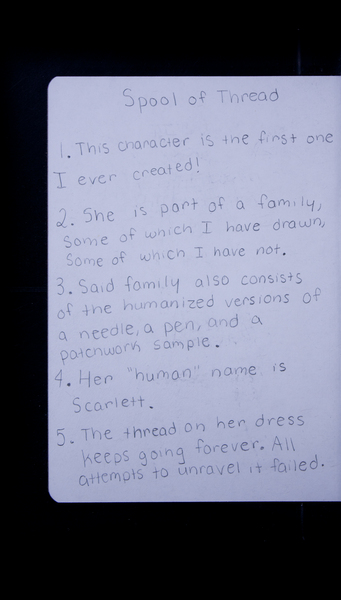 Spool of Thread
1. This character is the first one
I ever created!
2. She is part of a family,
some of which I have drawn,
some of which I have not.
3. Said family also consists
of the humanized versions of
a needle, a pen, and a
patchwork sample.
4. Her "human" name is
Scarlett.
5. The thread on her dress
keeps going forever. All
attempts to unravel it failed.